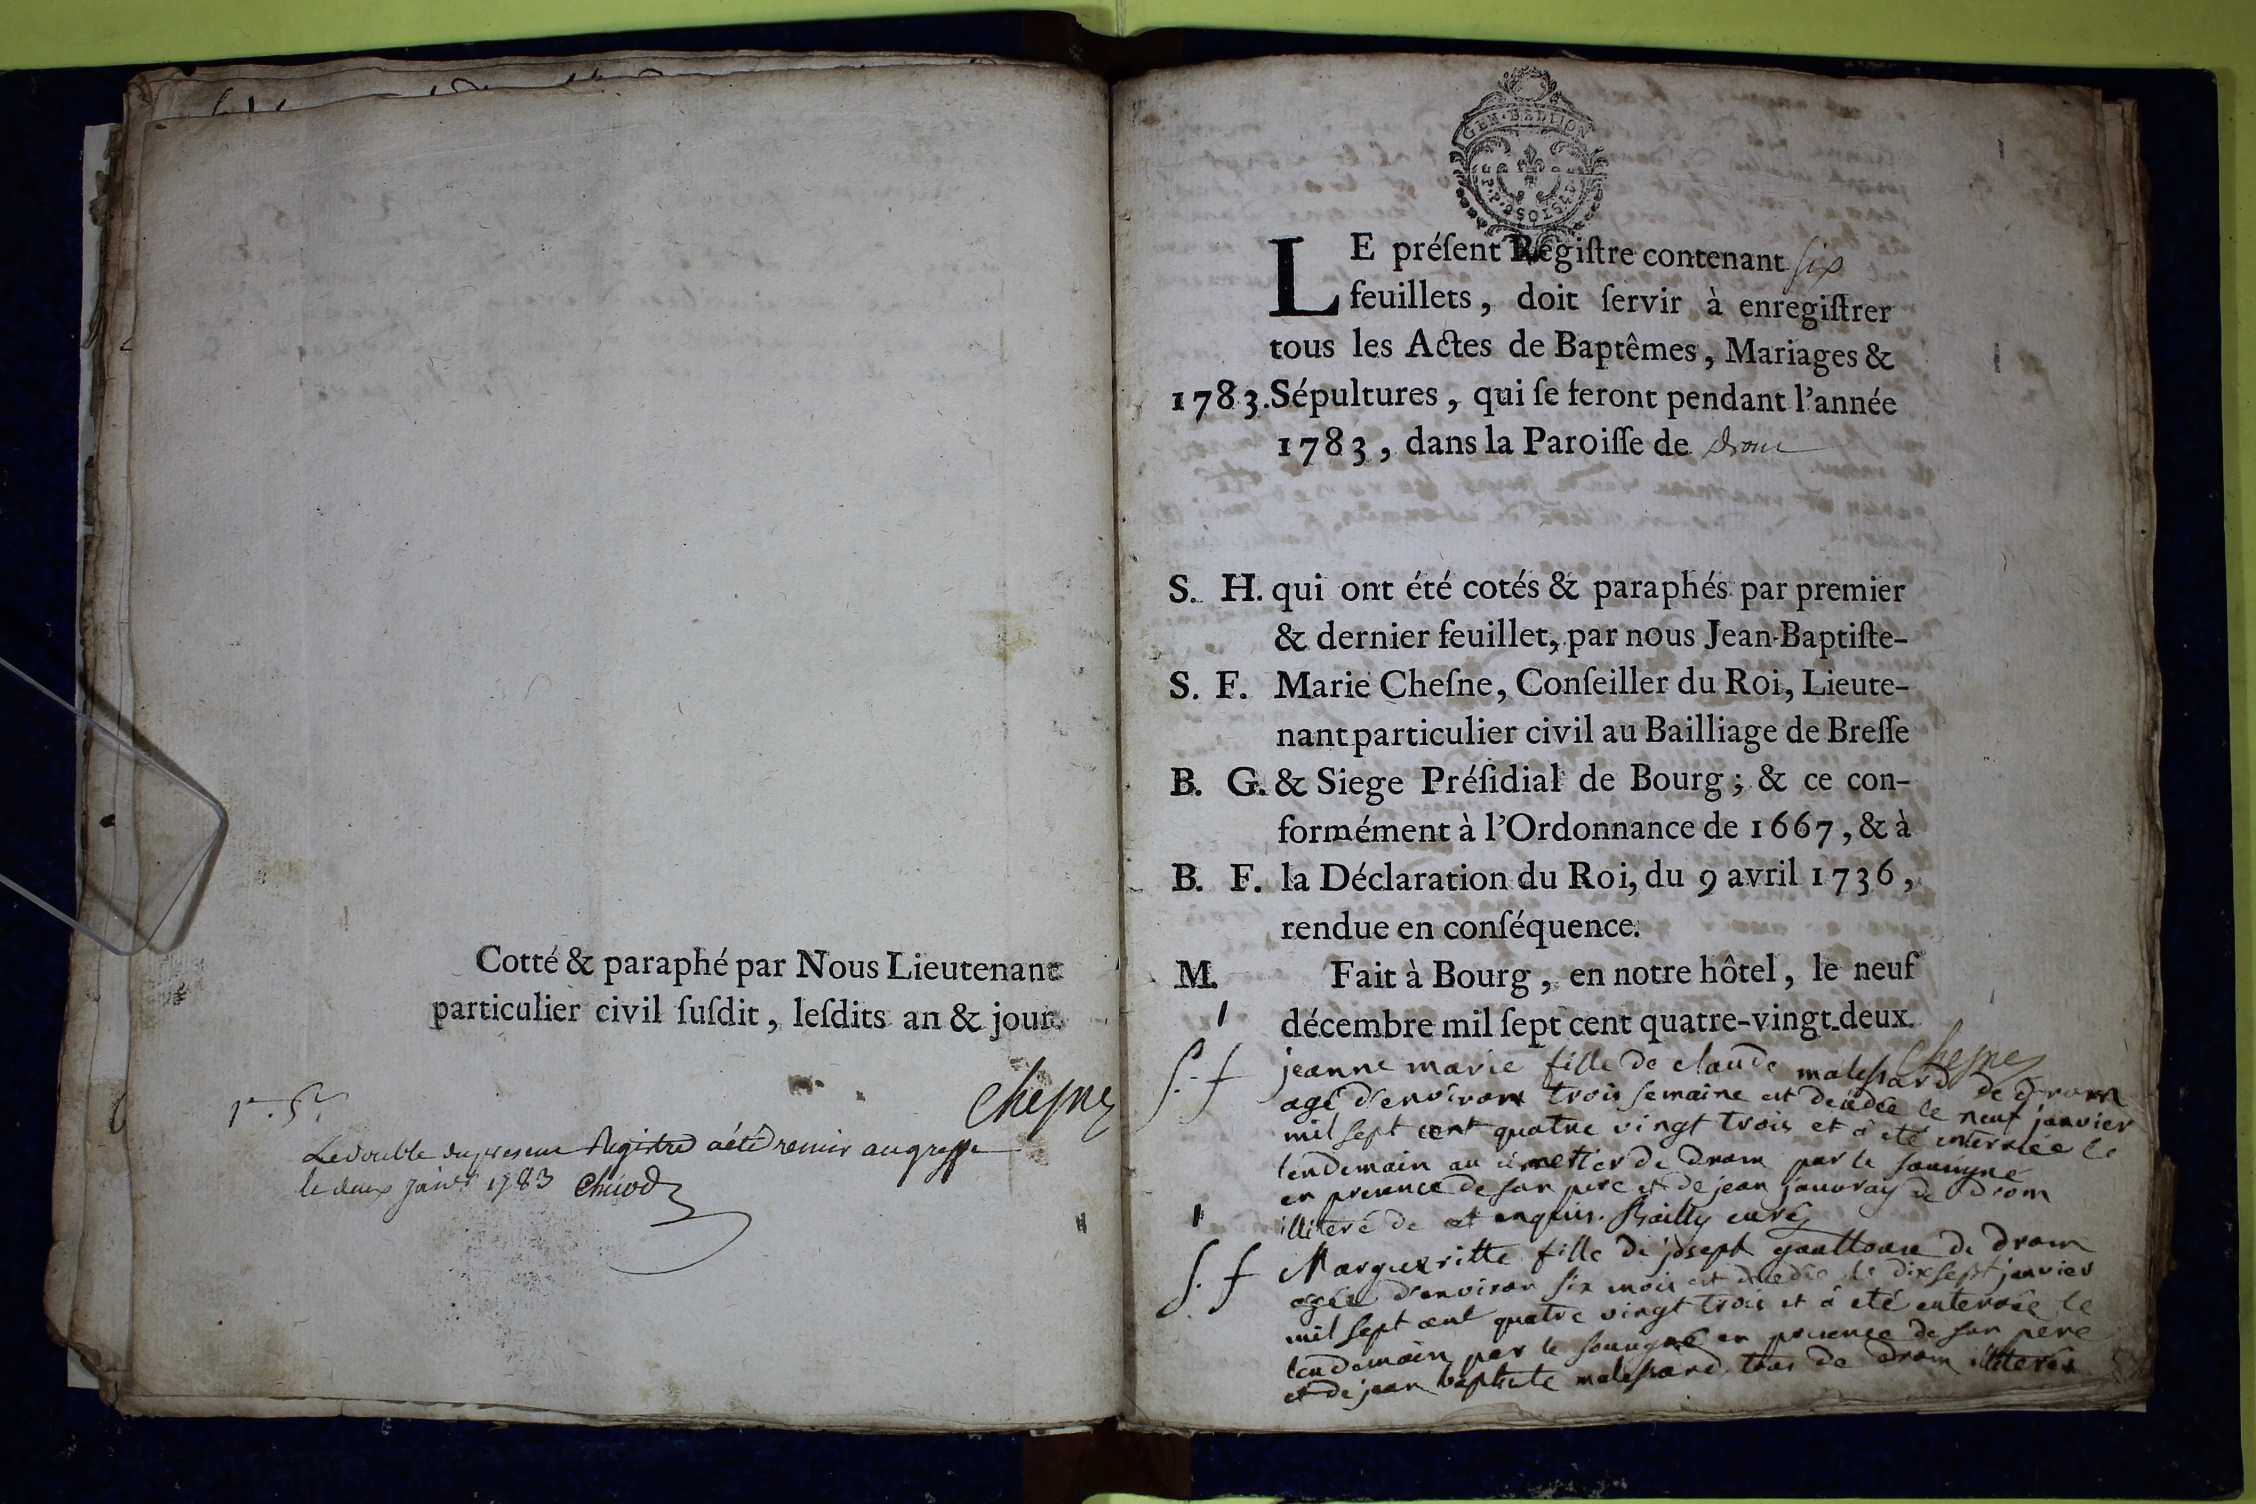 Cotté & paraphé par Nous Lieutenant
particulier civil ſuſdit, leſdits an & jour.
Cheſne
Le double du present Registre a été remis au greffe
le deux janv.r 1783
GEN·BEDLION
LE préſent Regiſtre contenant six
feuillets, doit ſervir à enregiſtrer
tous les Actes de Baptêmes, Mariages &
1783. Sépultures, qui ſe feront pendant l'année
1783, dans la Paroiſſe de drom
S. H. qui ont été cotés & paraphés par premier
& dernier feuillet, par nous Jean-Baptiſte-
S. F. Marie Cheſne, Conſeiller du Roi, Lieute-
nant particulier civil au Bailliage de Breſſe
B. G. & Siege Préſidial de Bourg; & ce con-
formément à l'Ordonnance de 1667, & à
B. F. la Déclaration du Roi, du 9 avril 1736,
rendue en conſéquence.
M. Fait à Bourg, en notre hôtel, le neuf
1 décembre mil ſept cent quatre-vingt-deux.
Cheſne
S. f jeanne marie fille de claude malessard de drom
agé d'environ trois semaine est dedée le neuf janvier
mil sept cent quatre vingt trois et a eté enterrée le
lendemain au cimetier de drom par le sousigné
en presence de son pere et de jean jauvray de drom
illiteré de et enquis. Bailly curé
1
S. f Marguerritte fille de josept gauttouse de drom
agée d'environ six mois est dedée le dix sept janvier
mil sept cent quatre vingt trois et a eté enterrée le
lendemain par le sousigné en presence de son pere
et de jean baptiste malessard tous de drom illiterés